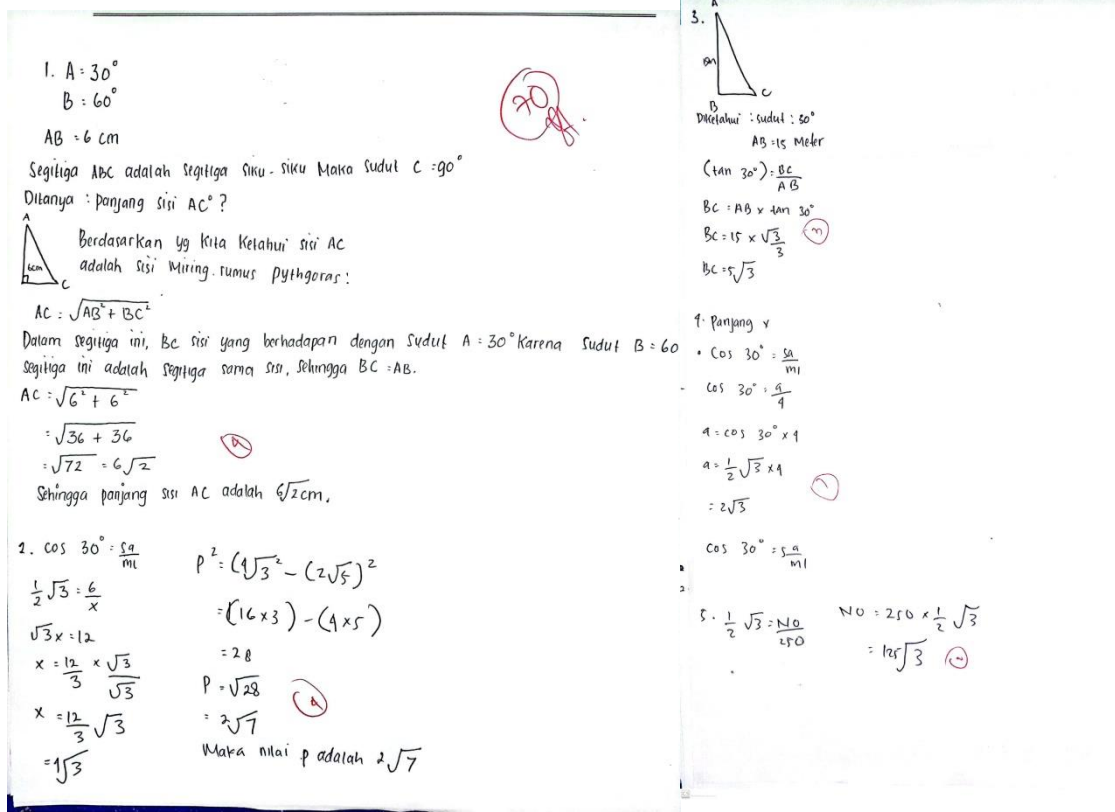 1. A = 30°
B = 60°
AB = 6 cm
Segitiga ABC adalah segitiga siku-siku Maka sudut C = 90°
Ditanya : panjang sisi AC° ?
A
6cm
C
Berdasarkan yg kita ketahui sisi AC
adalah sisi miring. rumus pythgoras :
AC = √AB² + BC²
Dalam segitiga ini, BC sisi yang berhadapan dengan sudut A = 30° karena sudut B = 60
segitiga ini adalah segitiga sama sisi, sehingga BC = AB.
AC = √6² + 6²
= √36 + 36
= √72 = 6√2
Sehingga panjang sisi AC adalah 6√2cm.
2. cos 30° = sa/mi
1/2 √3 = 6/x
√3x = 12
x = 12/3 × √3/√3
x = 12/3 √3
= 4√3
P² = (4√3² - (2√5)²
= (16×3) - (4×5)
= 28
P = √28
= 2√7
Maka nilai p adalah 2√7
70
3.
A
B
C
Diketahui : sudut : 30°
AB = 15 Meter
(tan 30°) = BC/AB
BC = AB × tan 30°
BC = 15 × √3/3
BC = 5√3
4. Panjang
• Cos 30° = sa/mi
cos 30° = a/4
a = cos 30° × 4
a = 1/2 √3 × 4
= 2√3
cos 30° = sa/mi
5. 1/2 √3 = NO/250
NO = 250 × 1/2 √3
= 125√3